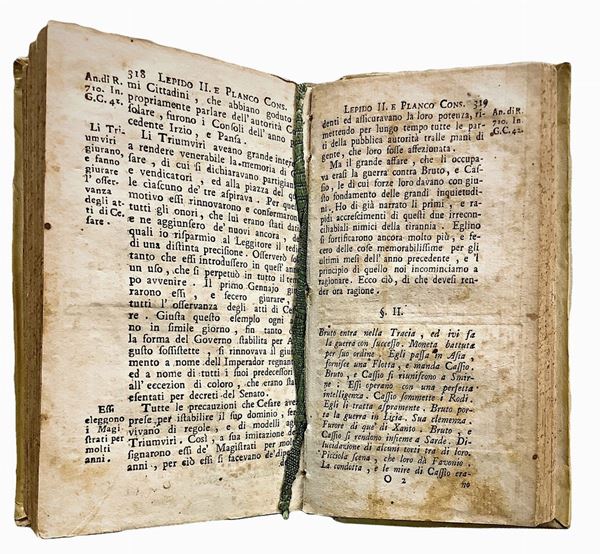 318 LEPIDO II. E PLANCO CONS.
An. di R.
710. In.
G.C. 42.
mi Cittadini, che abbiano goduto
propriamente parlare dell'autorità C
solare, furono i Consoli dell'anno
cedente Irzio, e Pansa.
Li Tri-
umviri
giurano,
e fanno
giurare
l'osser-
vanza
degli at-
ti di Ce-
sare.
Li Triumviri aveano grande intere
a rendere venerabile la memoria di
sare, di cui si dichiaravano partigian
e vendicatori, ed alla piazza del qu
le ciascuno de' tre aspirava. Per que
motivo essi rinnovarono e confermaron
tutti gli onori, che lui erano stati dat
æ ne aggiunsero de' nuovi ancora, de
quali io risparmio al Leggitore il ted
di una distinta precisione. Osserverò so
tanto che essi introdussero in quest' ann
un uso, che si perpetuò in tutto il tem
po avvenire. Il primo Gennajo giu
rarono essi, e fecero giurare a
tutti l'osservanza degli atti di Ce
re. Giusta questo esempio ogni a
no in simile giorno, fin tanto c
la forma del Governo stabilita per A
gusto sussistette, si rinnovava il giura
mento a nome dell'Imperador regnant
ed a nome di tutti i suoi predecessori
all'eccezion di coloro, che erano sta
esentati per decreti del Senato.
Essi
eleggono
i Magi-
strati per
molti
anni.
Tutte le precauzioni che Cesare ave
prese per istabilire il suo dominio, ser
vivano di regole, e di modelli ag
Triumviri. Così, a sua imitazione di
signarono essi de' Magistrati per mol
anni, per ciò essi si facevano de' dipe
LEPIDO II. E PLANCO CONS. 319
An. di R.
710. In
G.C. 42.
denti ed assicuravano la loro potenza, ri-
mettendo per lungo tempo tutte le par-
ti della pubblica autorità tralle mani di
gente, che loro fosse affezionata.
Ma il grande affare, che li occupa-
va erasi la guerra contra Bruto, e Cas-
sio, le di cui forze loro davano con giu-
sto fondamento delle grandi inquietudi-
ni. Ho di già narrato li primi, e ra-
pidi accrescimenti di questi due irrecon-
ciliabili nimici della tirannia. Eglino
si fortificarono ancora molto più, e fe-
cero delle cose memorabilissime per gli
ultimi mesi dell'anno precedente, e 'l
principio di quello noi incominciamo a
ragionare. Ecco ciò, di che devesi ren-
der ora ragione.
§. II.
Bruto entra nella Tracia, ed ivi fa
la guerra con successo. Moneta battuta
per suo ordine. Egli passa in Asia,
fornisce una Flotta, e manda Cassio.
Bruto, e Cassio si riuniscono a Smir-
ne. Essi operano con una perfetta
intelligenza. Cassio sommette i Rodj.
Egli li tratta aspramente. Bruto por-
ta la guerra in Licia. Sua clemenza.
Furore di que' di Xanto. Bruto, e
Cassio si rendono insieme a Sarde. Di-
lucidazione di alcuni torti tra di loro.
Picciola scena, che loro dà Favonio.
La condotta, e le mire di Cassio era-
O 2
no